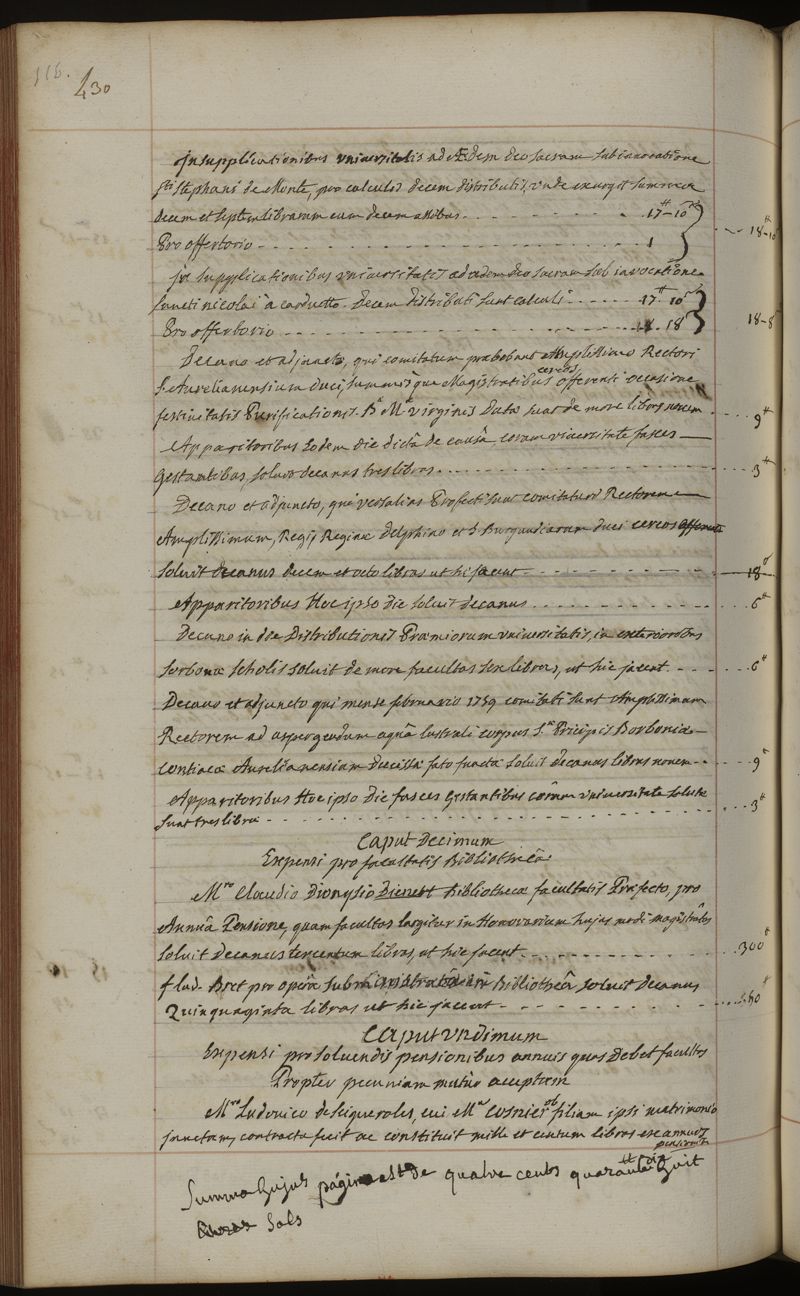 116.
430
In supplicationibus universitatis ad Ædem deo sacram sub invocatione
sti stephani de Monte, pro calculis decem distributis, unde exurgit summa
decem et septem librarum cum decem assibus . . . . 17tt-10s
18tt-10
Pro offertorio - - - - - - 1
In supplicationibus universitatis ad ædem deo sacram sub invocatione
sancti nicolai à carduetto decem distributi sunt calculi - - - - 17tt 10s
18-8
Pro offertorio - - - - - - 18
Decano et adjuncto, qui comitatum præbebant Amplissimo Rectori
S. Aurelianensium duci, summisque Magistratibus cereos offerenti occasione
festivitatis Purificationis Bæ Mæ virginis data sunt de more libræ novem . . . 9tt
Apparitoribus Eodem die dictâ de causâ coram universitate fasces
gestantibus, solvit decanus tres libras . . . . 3tt
Decano et adjuncto, qui versalias Profecti sunt comitaturi Rectorem
Amplissimum, Regi, Reginæ delphino et S Burgundiarum duci cereos
solvit decanus decem et octo libras ut hic jacent - - - - 18
Apparitoribus Hoc ipso die solvit decanus . . . . 6
Decano in die Distributionis Præmiorum universitatis, in exterioribus
sorbonæ scholis solvit de more facultas sex libras, ut hic jacent - - - - 6tt
Decano et adjuncto qui mense februario 1759 comitati sunt Amplissimum
Rectorem ad aspergendum aquâ lustrali corpus Sæ Pricipis Borboniæ
contiacæ Aurelianensium ducissæ fato functæ solvit decanus libras novem - - 9
Apparitoribus Hoc ipso Die fasces gestantibus coram universitate solutæ
sunt tres libræ - - - - 3tt
Caput Decimum
Expensi pro facultatis Bibliothecâ
Mro Claudio Dionysio Dienert Bibliothecæ facultatis Præfecto, pro
Annuâ Pensione, quam facultas largitur in Honorarium hujus modi magistratûs
solvit Decanus tercentum libras, ut hic jacent - - - - 300tt
Clad. Bret pro operâ in Bibliothecâ solvit Decanus
Quinquaginta libras ut hic jacent - - - -
Caput undimum
Expensi pro solvendis pensionibus annuis quas Debet facultas
Propter pecuniam mutuo acceptam
Mro Ludovico de cui Mer Cosnier ob filiam ipsi matrimonio
junctam, contractu fecit ac constituit mille et centum libras ex annuis
pensionibus
Summa hujus pagina est de quatre cents quaranta huit
livres sols